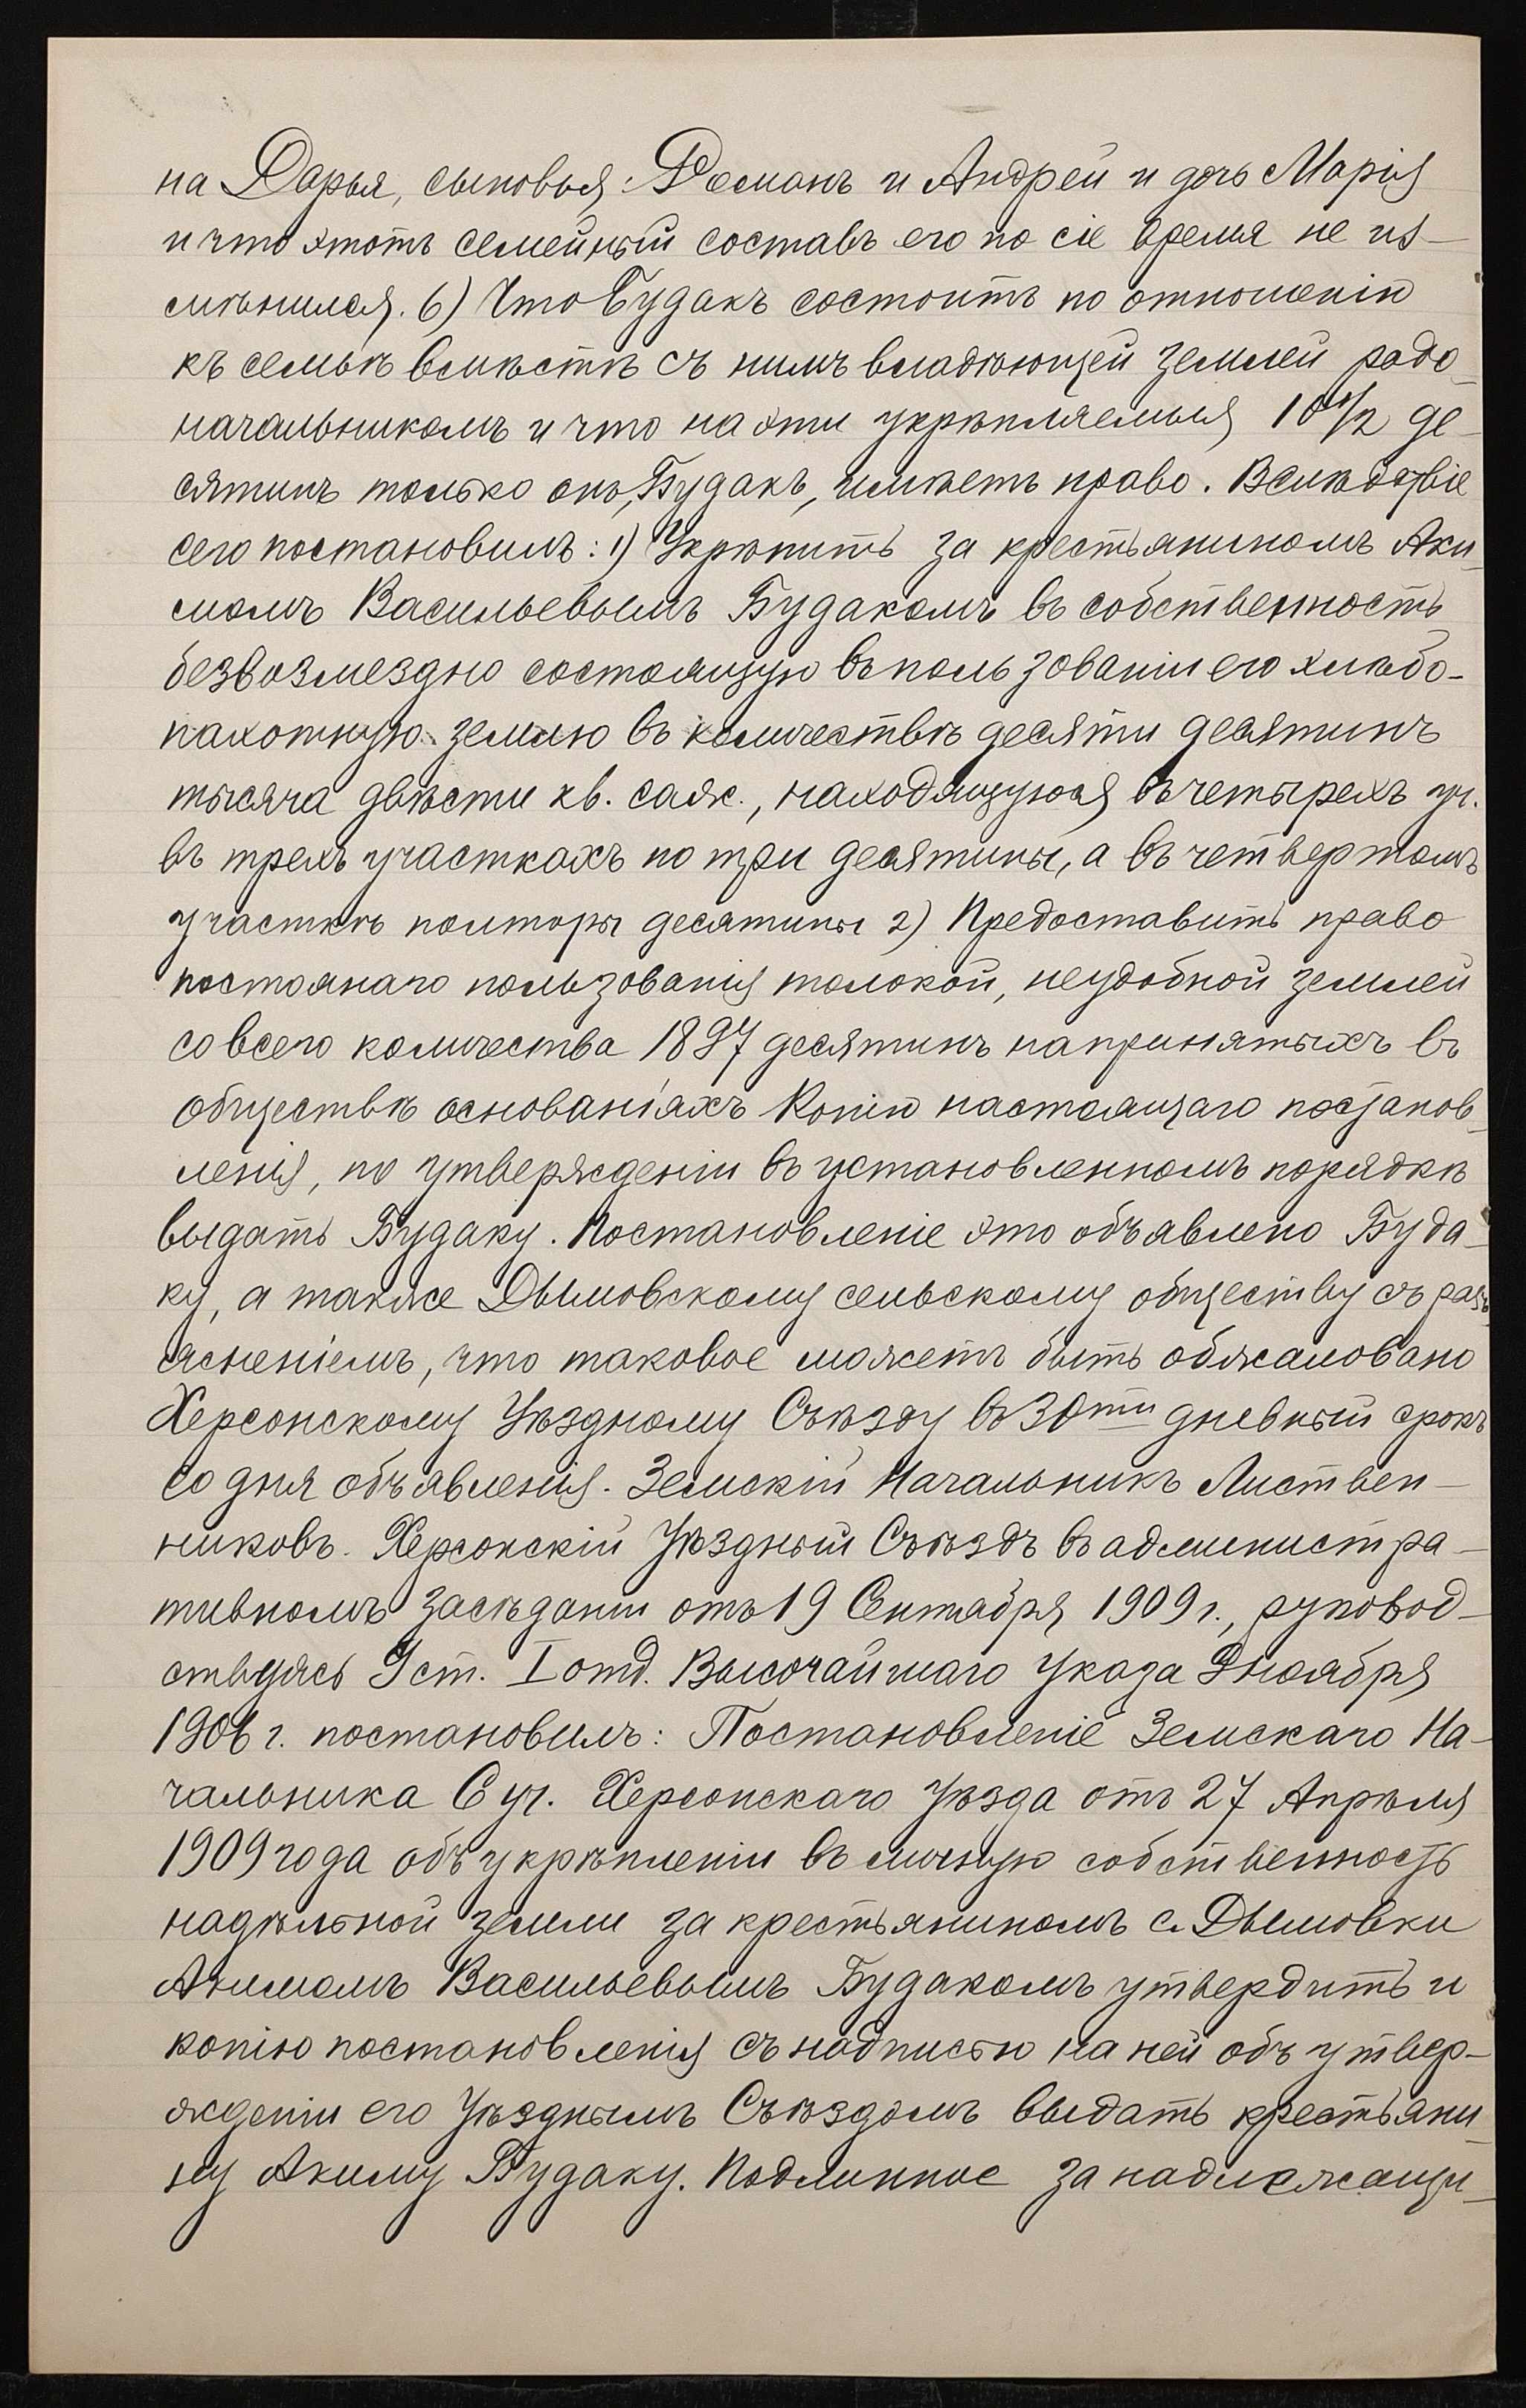 на Дарья, сыновья: Романъ и Андрей и дочь Марія
и что этотъ семейный составъ его по сіе время не из-
мѣнился. 6) Что Будакъ состоитъ по отношенію
къ семьѣ вмѣстѣ съ нимъ владѣющей землей родо-
начальникомъ и что на эти укрѣпляемыя 10½ де-
сятинъ только онъ, Будакъ, имѣетъ право. Вслѣдствіе
сего постановилъ: 1) Укрѣпить за крестьяниномъ Аки-
момъ Васильевымъ Будакомъ въ собственность
безвозмездно состоящую въ пользованіи его хлѣбо-
пахотную землю въ количествѣ десяти десятинъ
тысяча двѣсти кв. саж., находящуюся въ четырехъ уч.
въ трехъ участкахъ по три десятины, а въ четвертомъ
участкѣ полторы десятины 2) Предоставить право
постоянаго пользованія толокой, неудобной землей
со всего количества 1897 десятинъ на принятыхъ въ
обществѣ основаніяхъ Копію настоящаго постанов-
ленія, по утвержденіи въ установленномъ порядкѣ
выдать Будаку. Постановленіе это объявлено Буда-
ку, а также Дымовскому сельскому обществу съ разъ-
ясненіемъ, что таковое можетъ быть обжаловано
Херсонскому Уѣздному Съѣзду въ 30ти дневный срокъ
со дня объявленія. Земскій Начальникъ Листвен-
никовъ. Херсонскій Уѣздный Съѣздъ въ администра-
тивномъ засѣданіи отъ 19 Сентября 1909 г., руковод-
ствуясь 9 ст. I отд. Высочайшаго указа 9 ноября
1906 г. постановилъ: Постановленіе Земскаго На-
чальника 6 уч. Херсонскаго Уѣзда отъ 27 Апрѣля
1909 года объ укрѣпленіи въ личную собственность
надѣльной земли за крестьяниномъ с. Дымовки
Акимомъ Васильевымъ Будакомъ утвердить и
копію постановленія съ надписью на ней объ утвер-
жденіи его Уѣзднымъ Съѣздомъ выдать крестьяни-
ну Акиму Будаку. Подлинное за надлежащи-